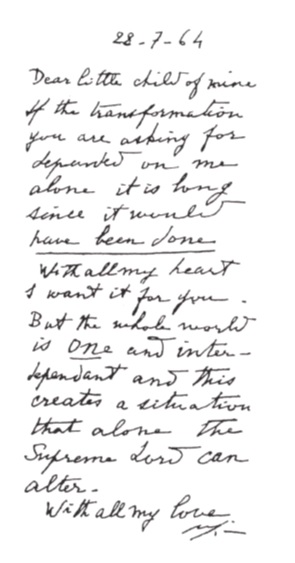 28-7-64
Dear little child of mine
If the transformation
you are asking for
depended on me
alone it is long
since it would
have been done
With all my heart
I want it for you.
But the whole world
is One and inter-
dependant and this
creates a situation
that alone the
Supreme Lord can
alter.
With all my love